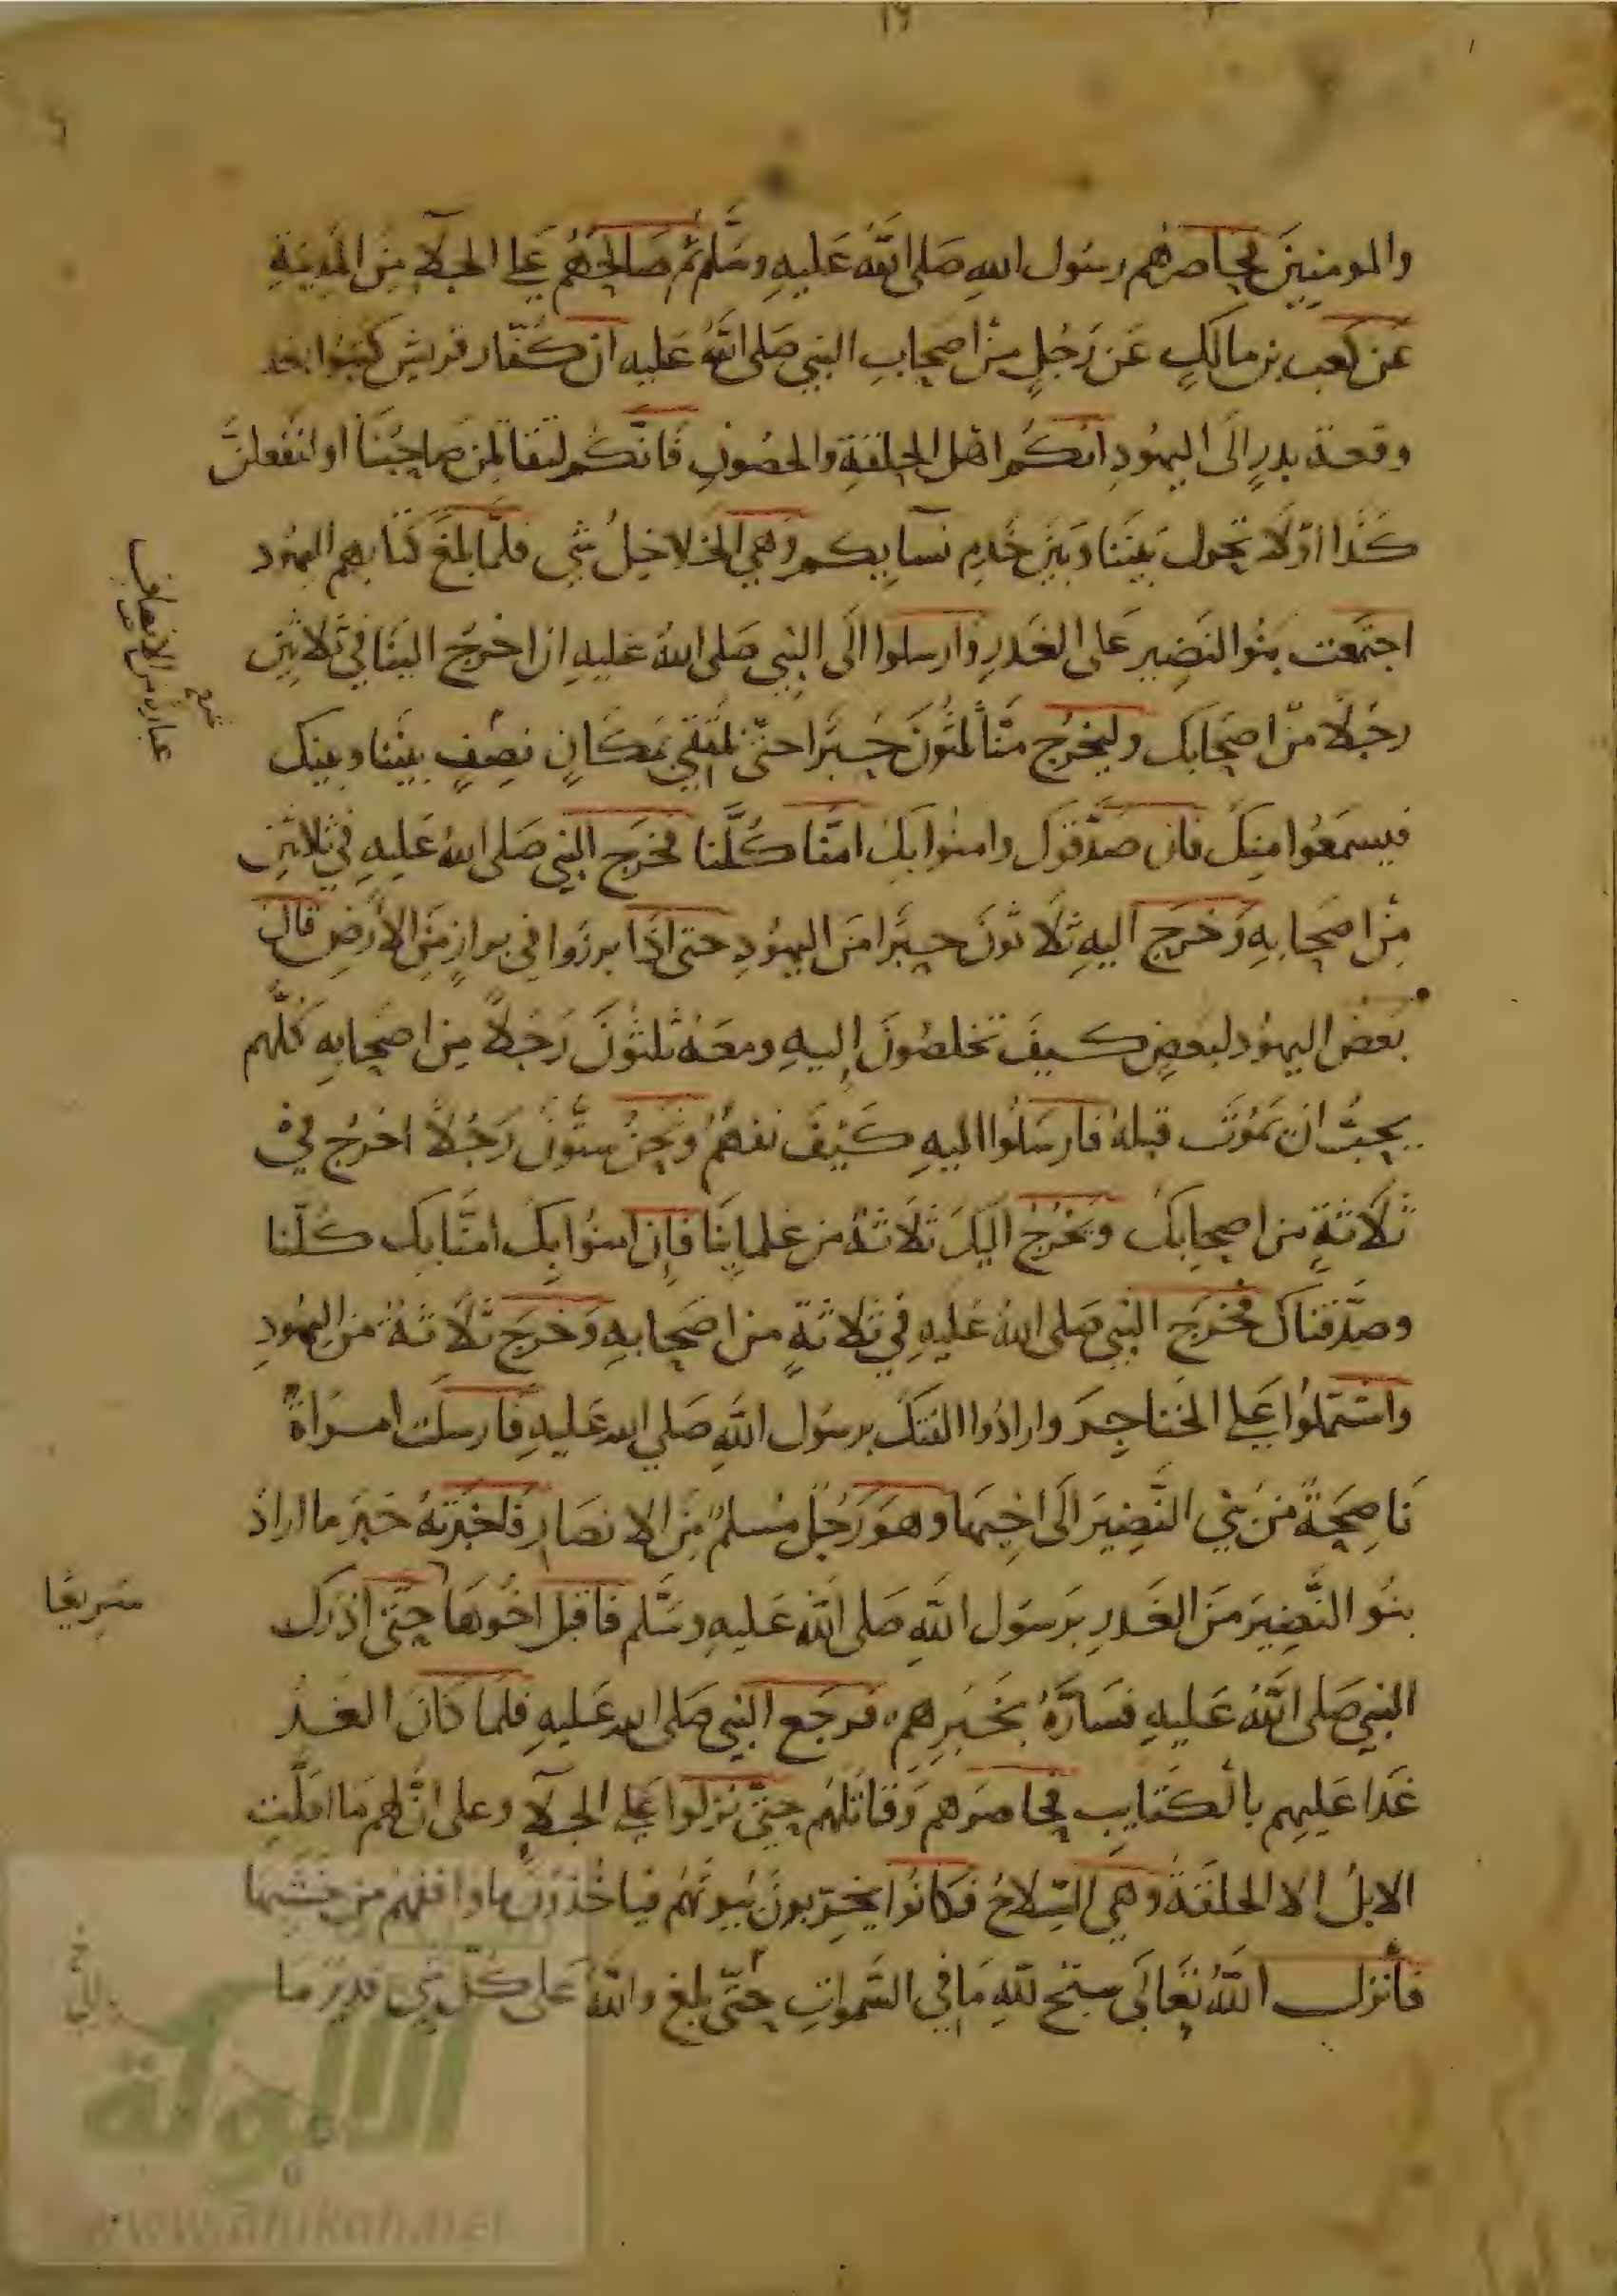 ١٩
والمومنين فحاصرهم رسول الله صلى الله عليه وسلم ثم صالحهم على الجلآ من المدينة
عن كعب بن مالك عن رجل من اصحاب النبي صلى الله عليه ان كفار قريش كتبوا بعد
وقعة بدر الى اليهود انكم اهل الحلقة والحصون فانكم لتقاتلن صاحبنا او لنفعلن
كذا او لا يحول بيننا وبين خدم نسايكم وهي الخلاخيل شي فلما بلغ كتابهم اليهود
اجتمعت بنو النضير على الغدر وارسلوا الى النبي صلى الله عليه ان اخرج الينا في ثلاثين
رجلا من اصحابك وليخرج منا ثلثون حبرا حتى نلتقي بمكان نصف بيننا وبينك
فيسمعوا منك فان صدقوك وامنوا بك امنا كلنا فخرج النبي صلى الله عليه في ثلاثين
من اصحابه وخرج اليه ثلاثون حبرا من اليهود حتى اذا برزوا في براز من الارض قال
بعض اليهود لبعض كيف تخلصون اليه ومعه ثلثون رجلا من اصحابه كلهم
يحب ان يموت قبله فارسلوا اليه كيف نفهم ونحن ستون رجلا اخرج في
ثلاثة من اصحابك ونخرج اليك ثلاثة من علماينا فان امنوا بك امنا بك كلنا
وصدقناك فخرج النبي صلى الله عليه في ثلاثة من اصحابه وخرج ثلاثة من اليهود
واشتملوا على الخناجر وارادوا الفتك برسول الله صلى الله عليه فارسلت امراة
ناصحة من بني النضير الى اخيها وهو رجل مسلم من الانصار فاخبرته خبر ما اراد
بنو النضير من الغدر برسول الله صلى الله عليه وسلم فاقبل اخوها حتى ادرك
سريعا
النبي صلى الله عليه فساره بخبرهم فرجع النبي صلى الله عليه فلما كان الغد
غدا عليهم بالكتايب فحاصرهم وقاتلهم حتى نزلوا على الجلآ وعلى ان لهم ما اقلت
الابل الا الحلقة وهي السلاح فكانوا يخربون بيوتهم فياخذون ما وافقهم من خشبها
فانزل الله تعالى سبح لله ما في السموات حتى بلغ والله على كل شي قدير ما
الألوكة
www.alukah.net